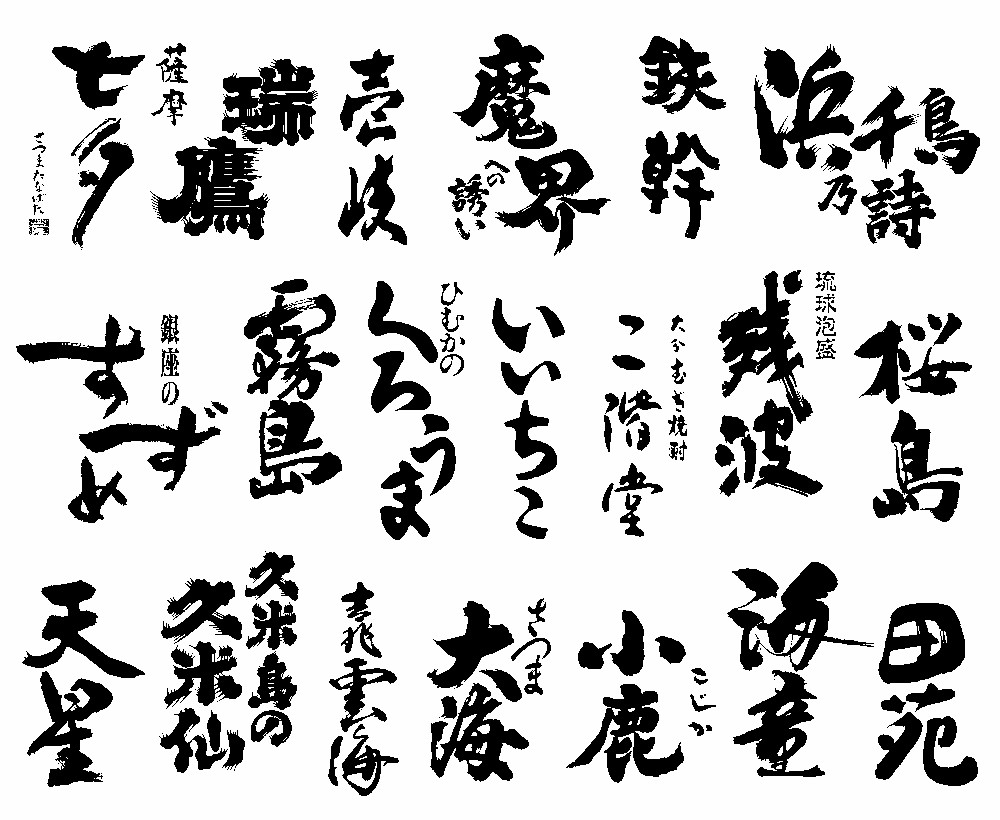 浜千鳥乃詩
鉄幹
魔界への誘い
壱岐
瑞鷹
薩摩
七夕
さつまたなばた
桜島
琉球泡盛
残波
大分むぎ焼酎
二階堂
いいちこ
ひむかの
くろうま
霧島
銀座の
すずめ
田苑
海童
小鹿
こじか
さつま
大海
吉兆雲海
久米島の
久米仙
天星